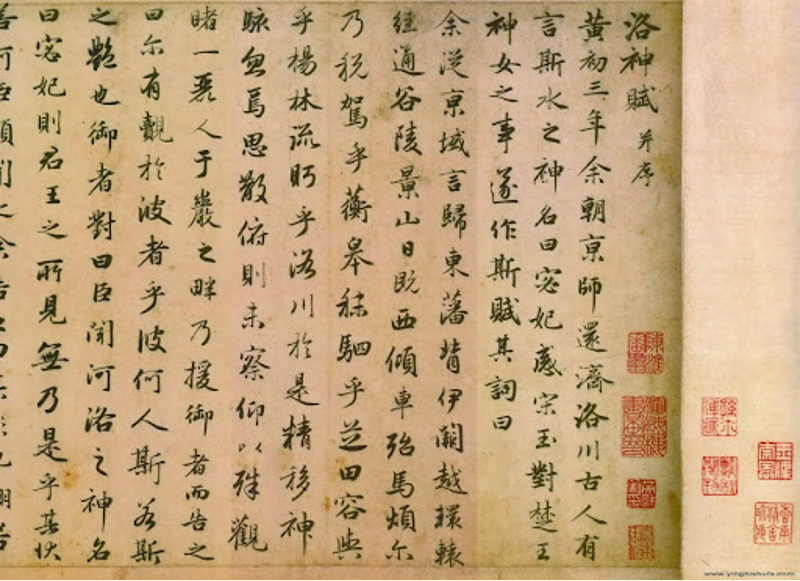 洛神賦 并序
黃初三年余朝京師還濟洛川古人有
言斯水之神名曰宓妃感宋玉對楚王
神女之事遂作斯賦其詞曰
余從京域言歸東藩背伊闕越轘轅
經通谷陵景山日既西傾車殆馬煩尔
乃稅駕乎蘅皋秣駟乎芝田容與
乎楊林流眄乎洛川於是精移神
駭忽焉思散俯則未察仰以殊觀
睹一麗人于巖之畔乃援御者而告之
曰尔有覿於彼者乎彼何人斯若斯
之艷也御者對曰臣聞河洛之神名
曰宓妃則君王之所見無乃是乎其狀
www.yingbishufa.com